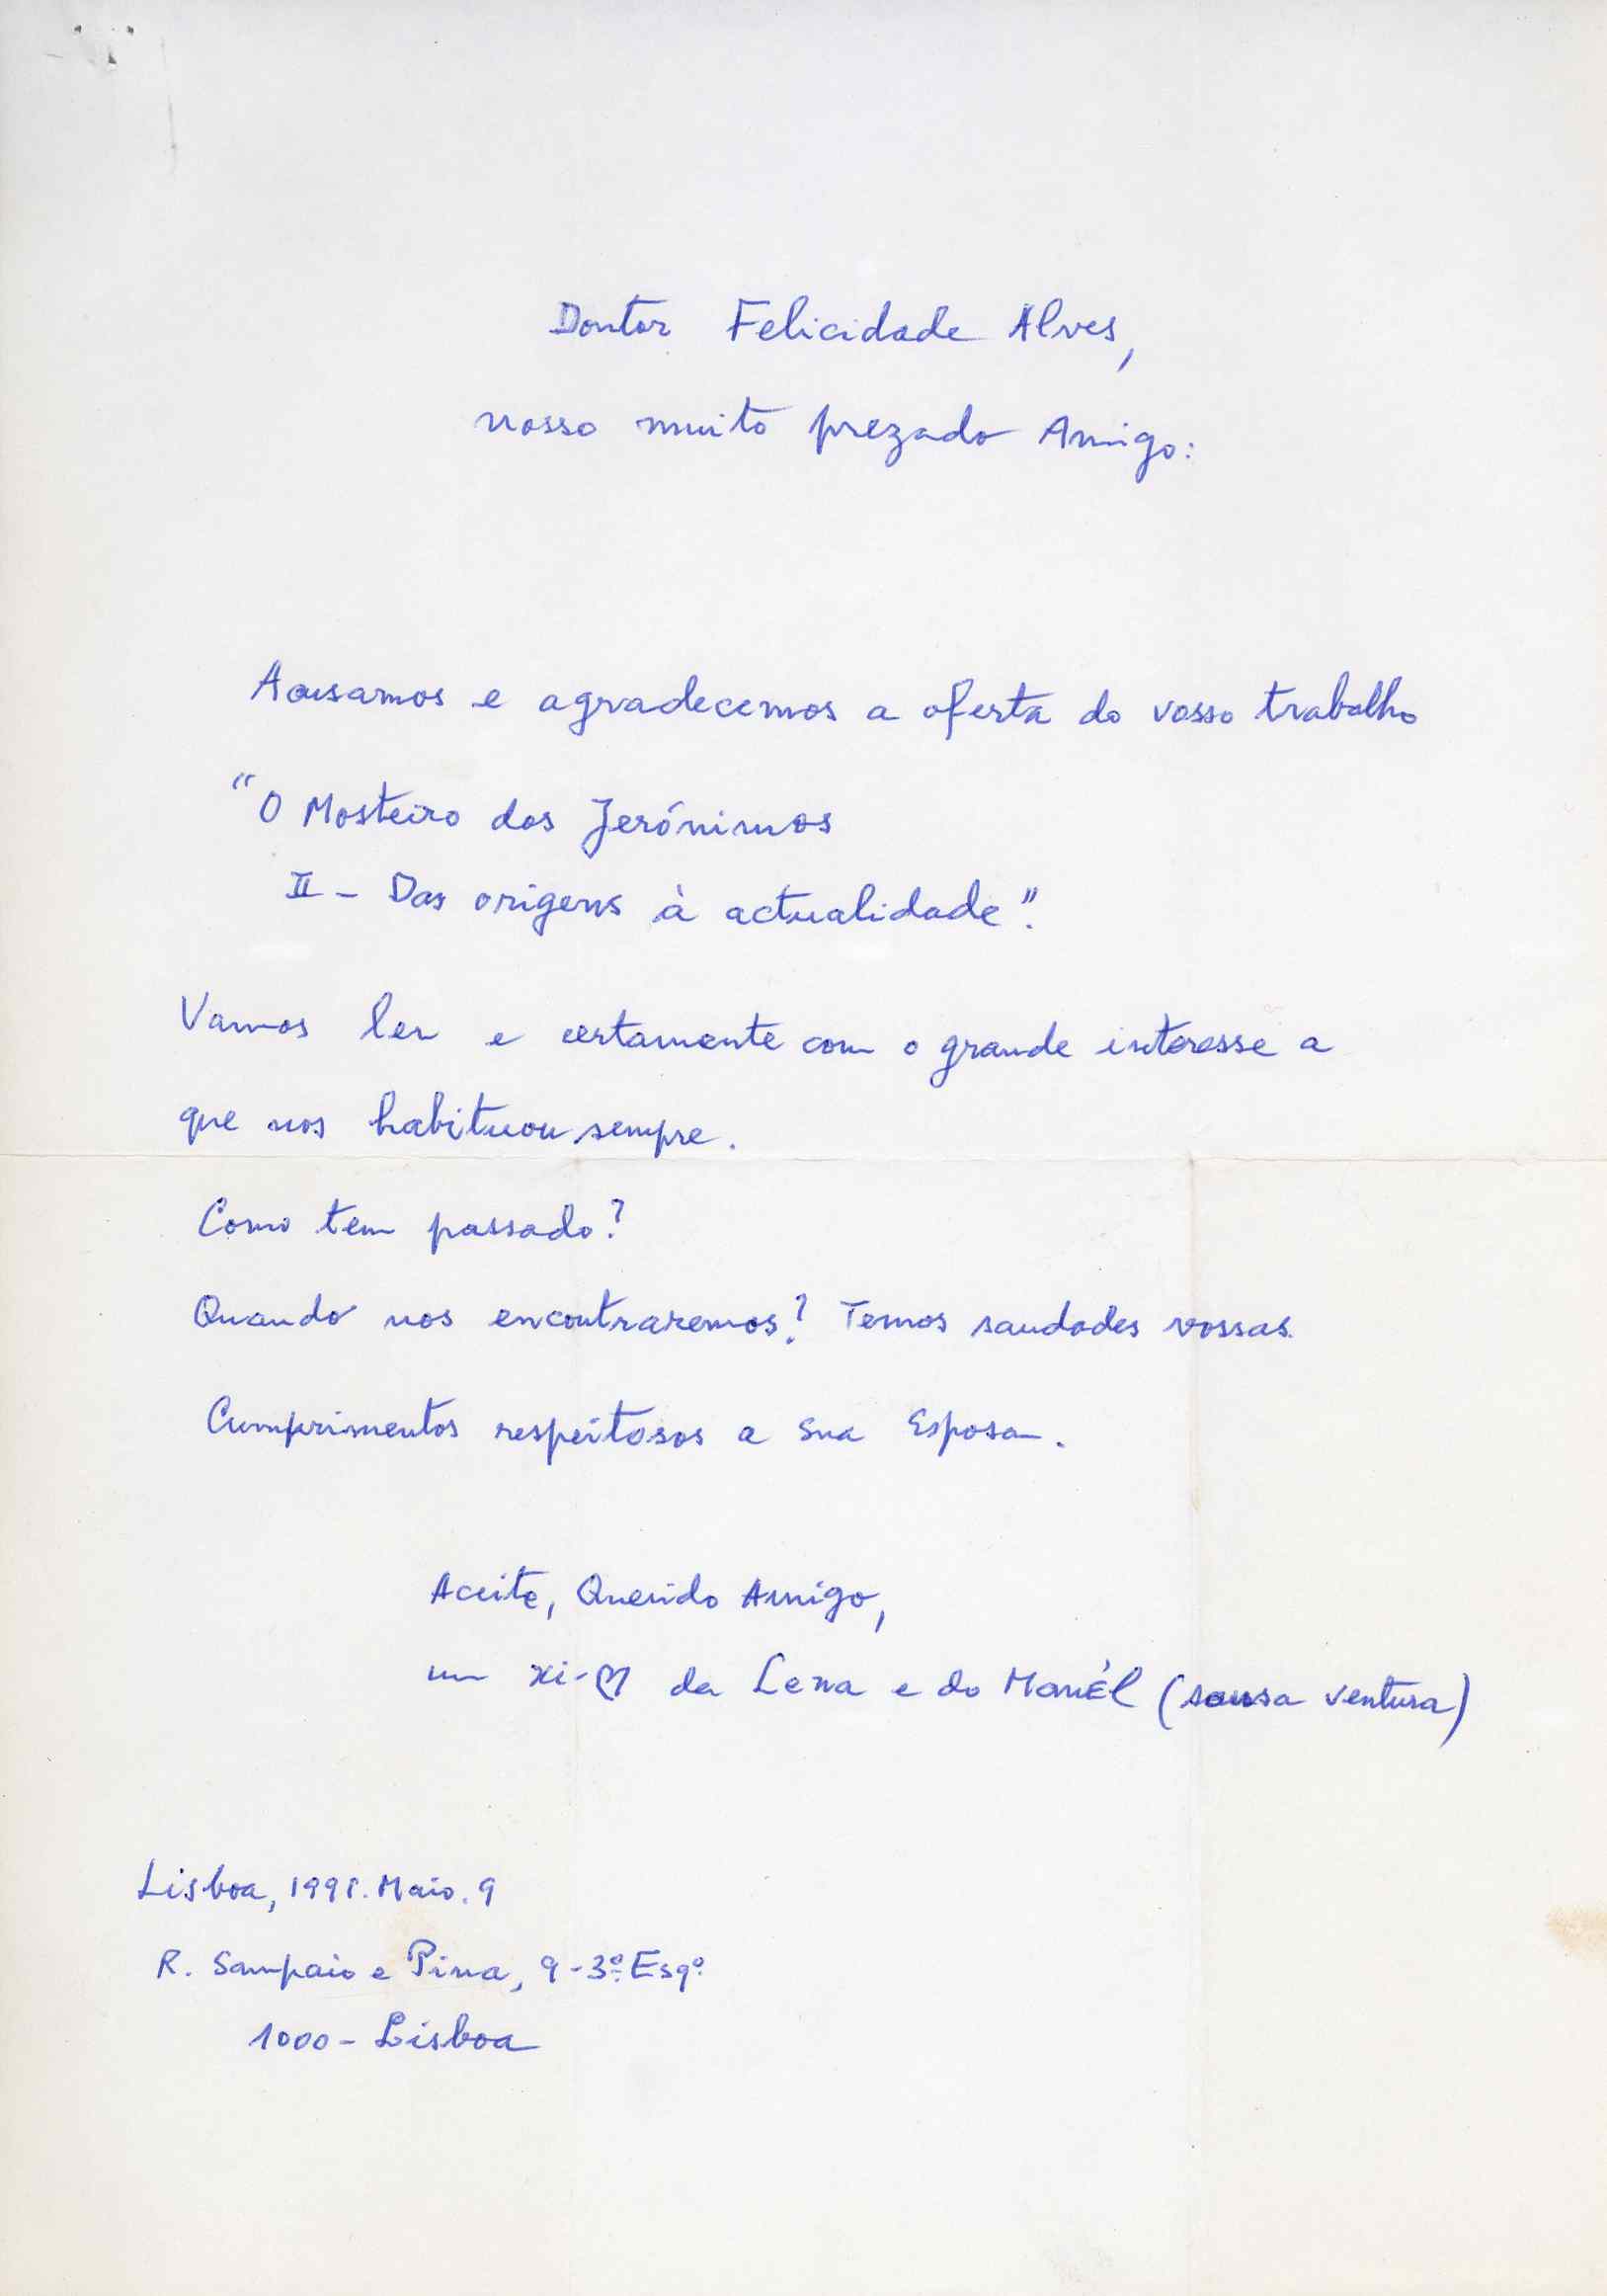 Doutor Felicidade Alves,
nosso muito prezado Amigo:
Acusamos e agradecemos a oferta do vosso trabalho
"O Mosteiro dos Jerónimos
II - Das origens à actualidade".
Vamos ler e certamente com o grande interesse a
que nos habituou sempre.
Como tem passado?
Quando nos encontraremos? Temos saudades vossas.
Cumprimentos respeitosos a sua Esposa.
Aceite, Querido Amigo,
um xi-♡ da Lena e do Manél (sousa ventura)
Lisboa, 1991. Maio. 9
R. Sampaio e Pina, 9-3º Esqº
1000 - Lisboa